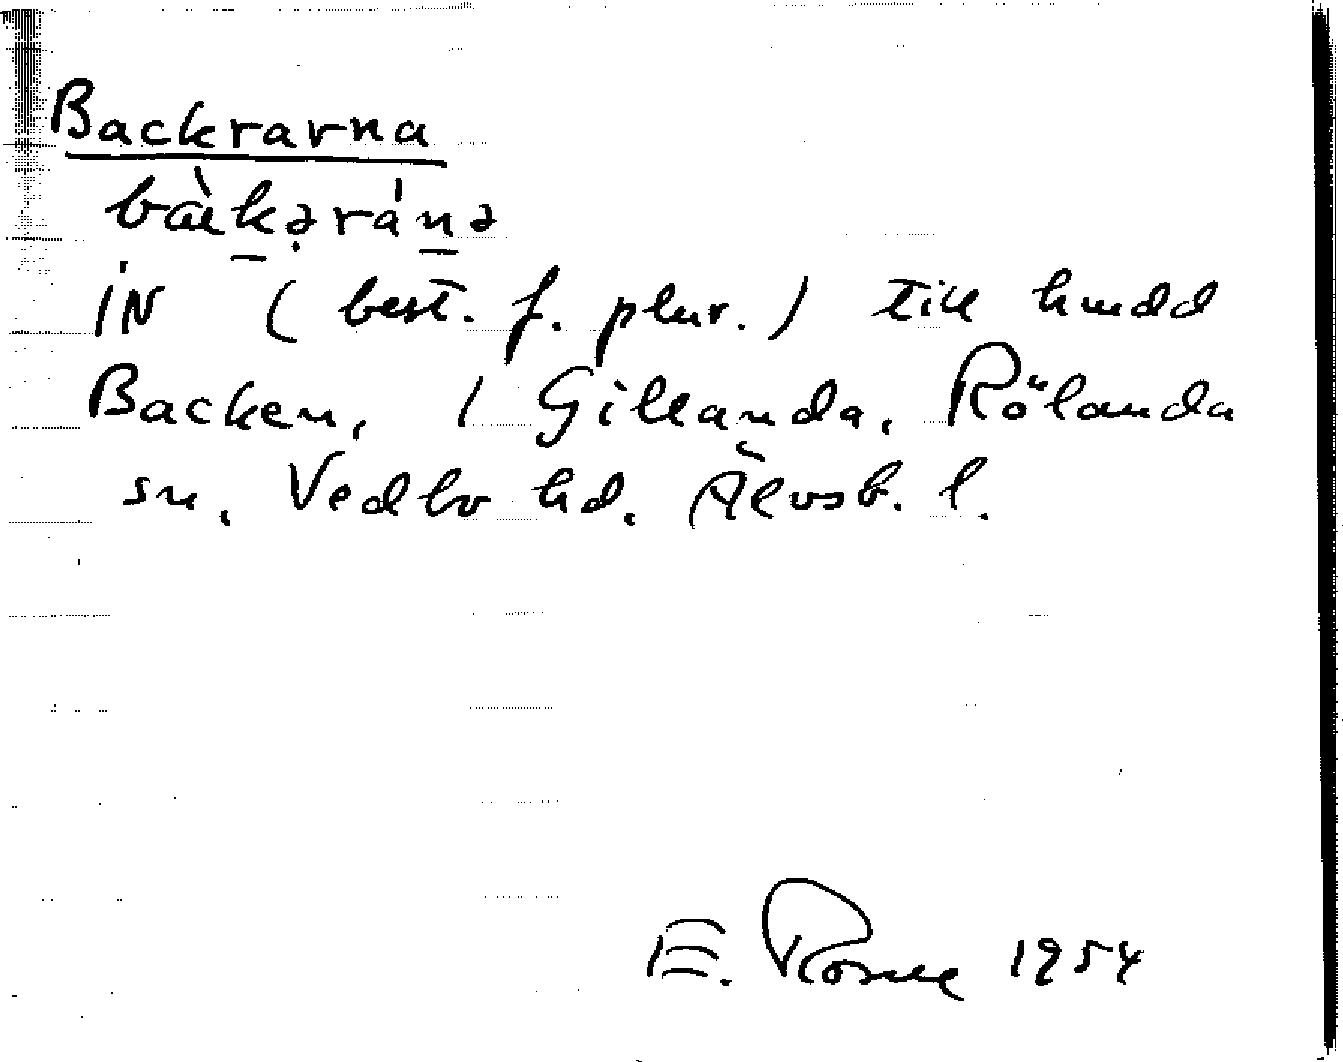 Backrarna
bàkəránə
IN (best. f. plur.) till hmdd
Backen, 1 Gillanda, Rölanda
sn, Vedbo hd. Älvsb. l.
E. 1954